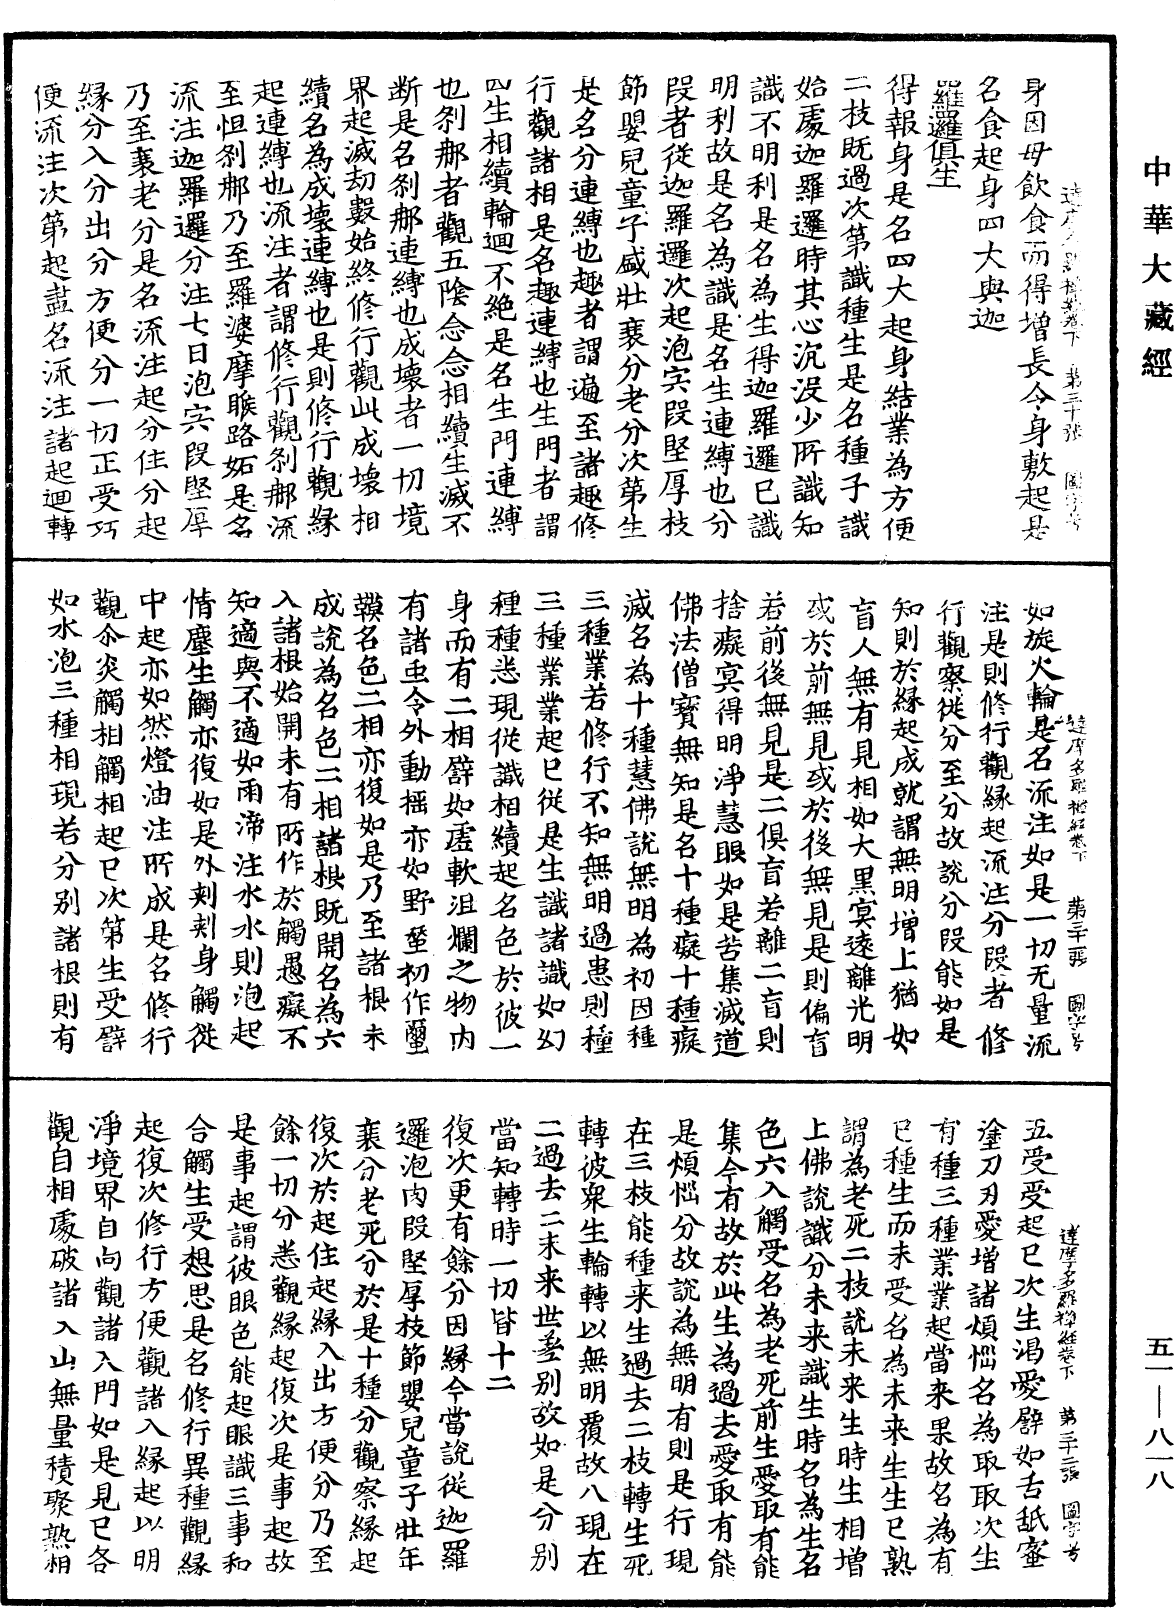 中華大藏經
身因母飲食而得增長今身敷起是
名食起身四大與迦
羅邏俱生
得報身是名四大起身結業為方便
二枝既過次第識種生是名種子識
始處迦羅邏時其心沉沒少所識知
識不明利是名為生得迦羅邏已識
明利故是名為識是名生連縛也分
段者從迦羅邏次起泡宍段堅厚枝
節嬰兒童子盛壯衰分老分次第生
是名分連縛也趣者謂遍至諸趣修
行觀諸相是名趣連縛也生門者謂
四生相續輪迴不絕是名生門連縛
也剎那者觀五陰念念相續生滅不
断是名剎那連縛也成壞者一切境
界起滅劫數始終修行觀此成壞相
續名為成壞連縛也是則修行觀緣
起連縛也流注者謂修行觀剎那流
至怛剎那乃至羅婆摩睺路妬是名
流注迦羅邏分注七日泡宍段堅厚
乃至衰老分是名流注起分住分起
緣分入分出分方便分一切正受巧
便流注次第起盡名流注諸起迴轉
達摩多羅禪經卷下 第三十張 圖字号
如旋火輪是名流注如是一切无量流
注是則修行觀緣起流注分段者修
行觀察從分至分故說分段能如是
知則於緣起成就謂無明增上猶如
盲人無有見相如大黑冥遠離光明
或於前無見或於後無見是則偏盲
若前後無見是二俱盲若離二盲則
捨癡冥得明淨慧眼如是苦集滅道
佛法僧寶無知是名十種癡十種癡
滅名為十種慧佛說無明為初因種
三種業若修行不知無明過患則種
三種業業起已從是生識諸識如幻
種種悉現從識相續起名色於彼一
身而有二相譬如虛軟沮爛之物内
有諸虫令外動搖亦如野蚕初作璽
鞕名色二相亦復如是乃至諸根未
成說為名色二相諸根既開名為六
入諸根始開未有所作於觸愚癡不
知適與不適如雨渧注水水則泡起
情塵生觸亦復如是外刺刺身觸從
中起亦如然燈油注所成是名修行
觀尒炎觸相觸相起已次第生受譬
如水泡三種相現若分別諸根則有
達摩多羅禪經卷下 第三十一張 圖字号
五受受起已次生渴愛譬如舌舐蜜
塗刀刃愛增諸煩惱名為取取次生
有種三種業業起當来果故名為有
已種生而未受名為未来生生已熟
謂為老死二枝說未来生時生相增
上佛說識分未来識生時名為生名
色六入觸受名為老死前生愛取有能
集今有故於此生為過去愛取有能
是煩惱分故說為無明有則是行現
在三枝能種来生過去二枝轉生死
轉彼衆生輪轉以無明覆故八現在
二過去二未来世差别故如是分别
當知轉時一切皆十二
復次更有餘分因緣今當說從迦羅
邏泡肉段堅厚枝節嬰兒童子壯年
衰分老死分於是十種分觀察緣起
復次於起住起緣入出方便分乃至
餘一切分悉觀緣起復次是事起故
是事起謂彼眼色能起眼識三事和
合觸生受想思是名修行異種觀緣
起復次修行方便觀諸入緣起以明
淨境界自向觀諸入門如是見已各
觀自相處破諸入山無量積聚熟相
達摩多羅禪經卷下 第三十二張 圖字号
五一—八一八